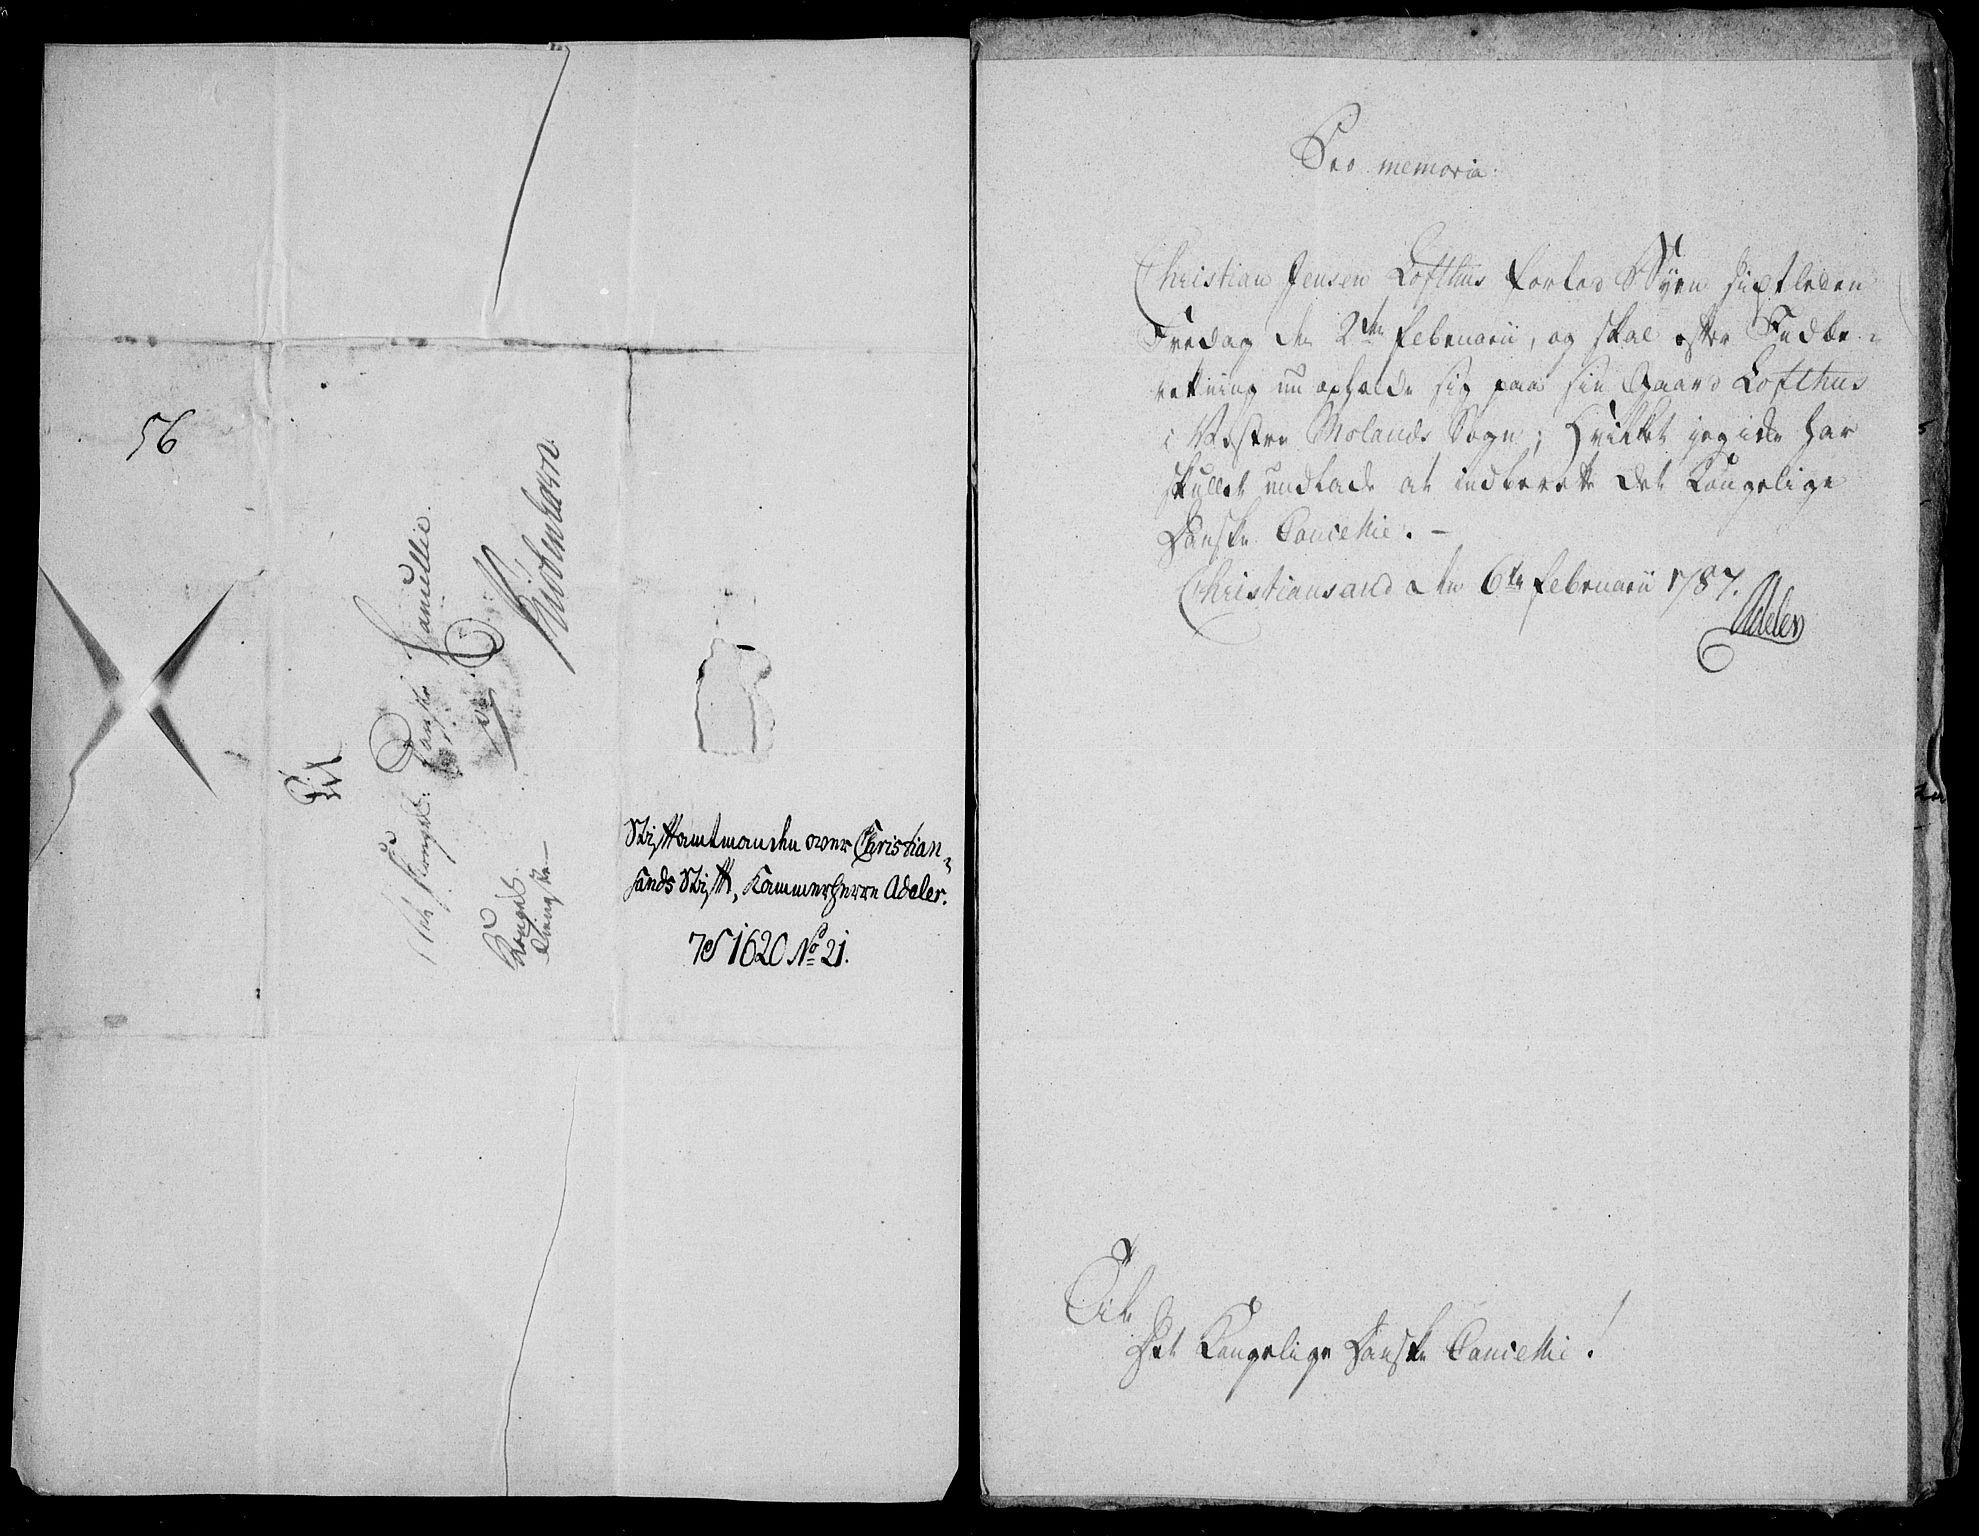 56
Til
Det Kongel: Danske Cancellie.
Kiøbenhavn.
Kongel:
Tieneste
Stiftamtmanden over Christian„
sands Stift, Kammerherre Adeler.
1620 No 21.
Pro memoria.
Christian Jensen Lofthus forlod Byen sidstleden
Fredag den 2den Februarii, og skal efter Indbe„
retning nu opholde sig paa sin Gaard Lofthus
i Vestre Molands Sogn; Hvilket jeg icke har
skullet undlade at indberette det Kongelige
Danske Cancellie. —
Christiansand den 6te Februarii 1787.
Adeler
Til
Det Kongelige Danske Cancellie!